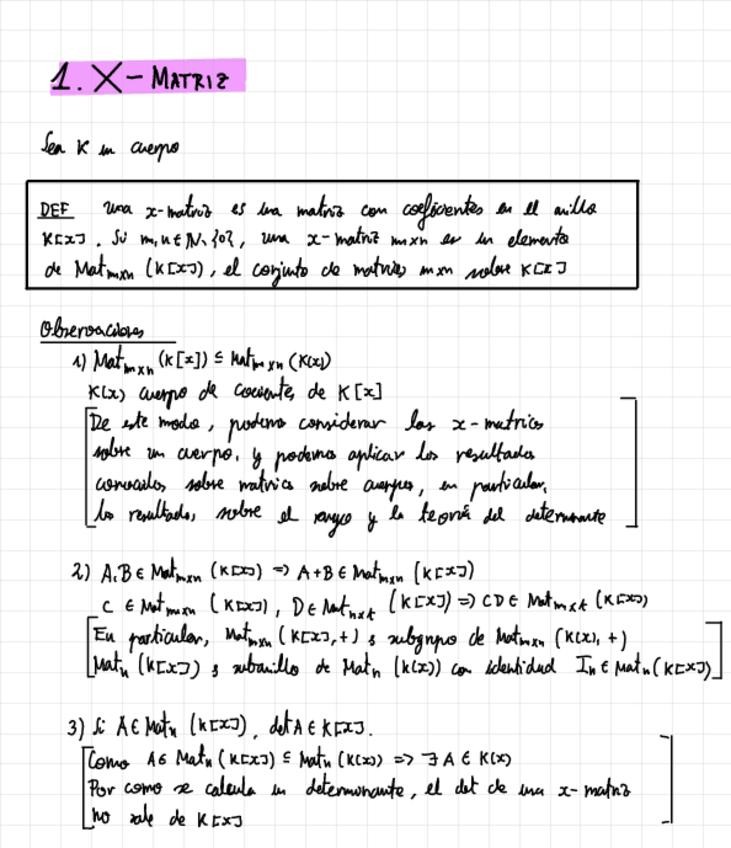 1. X-MATRIZ
Sea K un cuerpo
DEF una x-matriz es una matriz con coeficientes en el anillo
K[x]. Si m,n ∈ N\{0}, una x-matriz mxn es un elemento
de Mat_mxn (K[x]), el conjunto de matrices mxn sobre K[x]
Observaciones
1) Mat_mxn (K[x]) ⊆ Mat_mxn (K(x))
K(x) cuerpo de cocientes de K[x]
De este modo, podemos considerar las x-matrices
sobre un cuerpo, y podemos aplicar los resultados
conocidos sobre matrices sobre cuerpos, en particular,
los resultados sobre el rango y la teoría del determinante
2) A,B ∈ Mat_mxn (K[x]) => A+B ∈ Mat_mxn (K[x])
C ∈ Mat_mxn (K[x]), D ∈ Mat_nxt (K[x]) => CD ∈ Mat_mxt (K[x])
En particular, Mat_mxn (K[x],+) s subgrupo de Mat_mxn (K(x),+)
Mat_n (K[x]) s subanillo de Mat_n (K(x)) con identidad I_n ∈ Mat_n (K[x])
3) Si A ∈ Mat_n (K[x]), det A ∈ K[x].
Como A ∈ Mat_n (K[x]) ⊆ Mat_n (K(x)) => ∃ A ∈ K(x)
Por como se calcula un determinante, el det de una x-matriz
no sale de K[x]